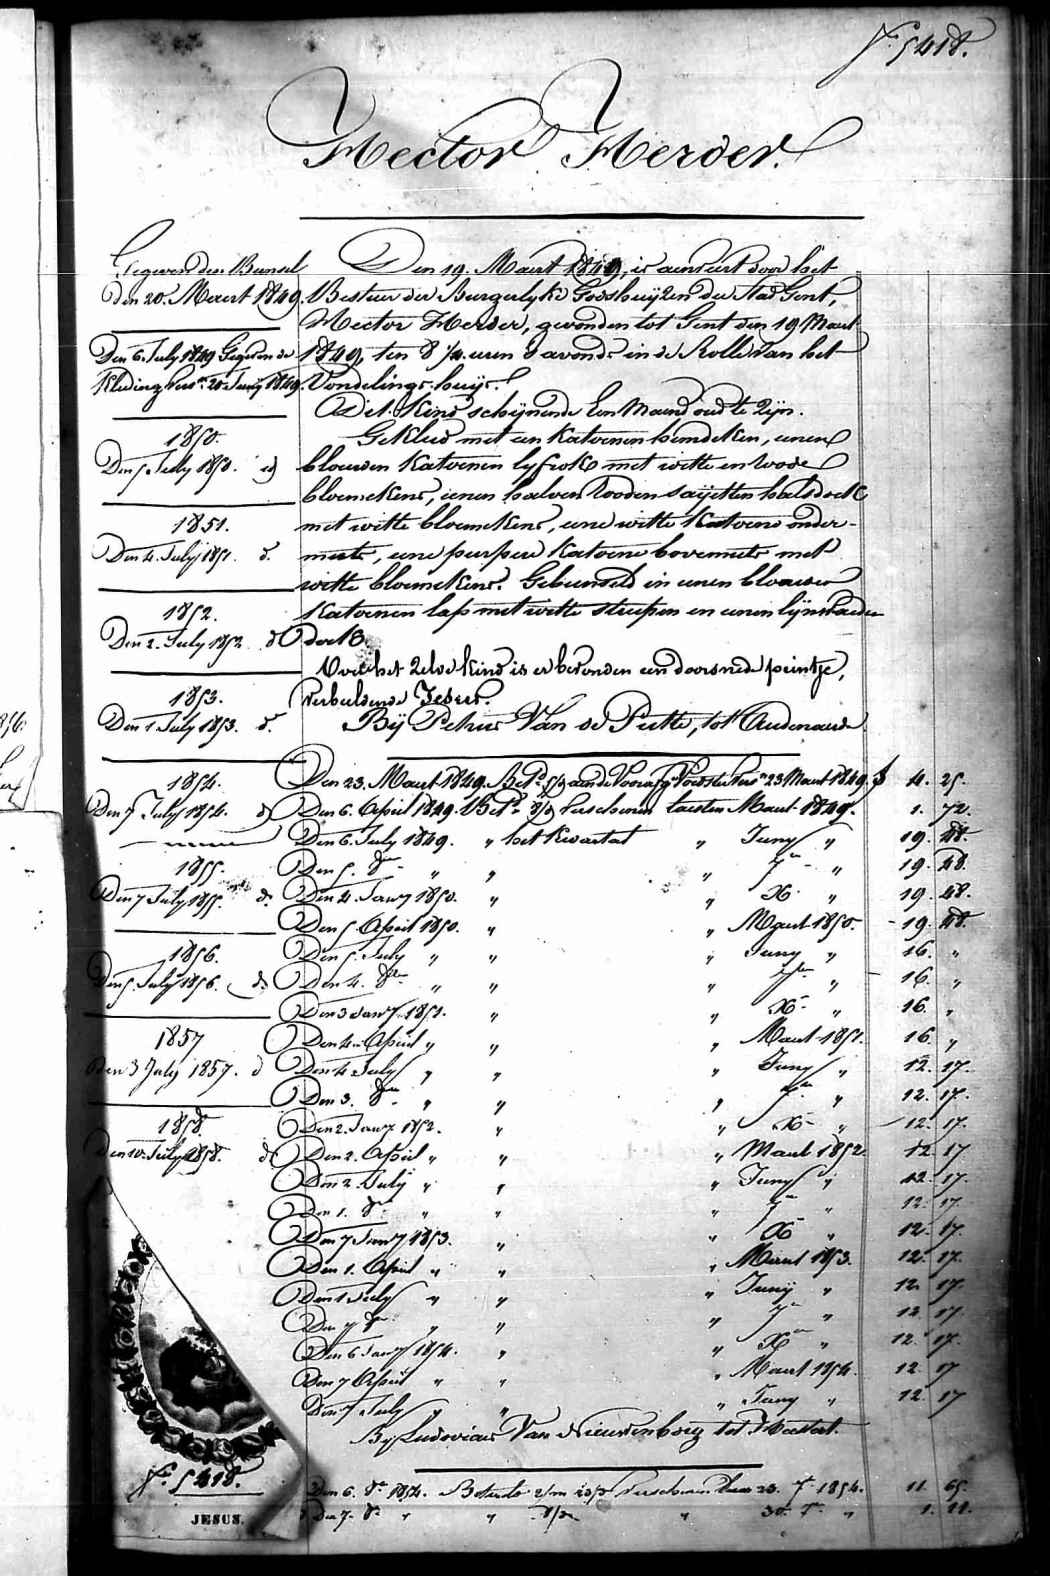 N.º 5418.
Hector Herder.
Gegeven den Bunsel
den 20. Maert 1849.
Den 6. July 1849 Gegeven de
Kleding
1850.
Den 5 July 1850. id
1851.
Den 4. July 1851. d.
1852.
Den 2. July 1852 d
1853.
Den 1 July 1853. d.
1854.
Den 7 July 1854. d
1855.
Den 7 July 1855. d.
1856.
Den 5. July 1856. d
1857
Den 3 July 1857. d
1858.
Den 10. July 1858. d
Den 19. Maert 1849, is aenveirt door het
Bestuer der Burgerlyke Godshuijzen der stad Gent,
Hector Herder, gevonden tot Gent den 19 Maert
1849, ten 8 1/4 uren s'avonds in de Rolle van het
Vondelings-huijs.
Dit Kind schijnende Een Maend oud te zijn.
Gekleed met een Katoenen hemdeken, eenen
blauwen Katoenen lyfrok met witte en roode
bloemekens, eenen halven rooden saijetten halsdoek
met witte bloemekens, eene witte Katoene onder-
muts, eene purpere Katoene bovenmuts met
witte bloemekens. Gebunseld in eenen blauwen
Katoenen lap met witte streepen en eenen lijnwaeden
doek.
Voor het zelve kind is er bevonden een doorsnede printje,
verbeldende Jesus.
Bij Petrus Van de Putte, tot Audenaerde.
Den 23. Maert 1849. 23 Maert 1849. f 4. 25.
Den 6. April 1849. verschenen laesten Maert 1849. 1. 72.
Den 6. July 1849. " het Kwartael " Juny " 19. 48.
Den 5. 8er " " " 7er " 19. 48.
Den 4 Janry 1850. " " Xr " 19. 48.
Den 5 April 1850. " " Maert 1850. 19. 48.
Den 5. July " " " Juny " 16. "
Den 4. 8er " " " 7er " 16. "
Den 3 Janry 1851. " " Xr " 16. "
Den 4 April " " " Maert 1851. 16. "
Den 4 July " " " Juny " 12. 17.
Den 3. 8er " " " 7er " 12. 17.
Den 2. Janry 1852. " " Xr " 12. 17.
Den 2. April " " " Maert 1852. 12. 17
Den 2. July " " " Juny " 12. 17.
Den 1. 8er " " " 7er " 12. 17.
Den 7 Janry 1853. " " Xr " 12. 17.
Den 1. April " " " Maert 1853. 12. 17.
Den 1 July " " " Juny " 12. 17.
Den 7 8er " " " 7er " 12. 17.
Den 6 Janry 1854. " " Xer " 12. 17.
Den 7 April " " " Maert 1854. 12. 17
Den 7 July " " " Juny " 12. 17
By Ludovicus Van Nieuwenborg tot
Den 6. 8er 1854. verschenen den 23. 7r 1854. 11. 65.
Den 7. 8er " " " 30. 7r " 1. 11.
N.º 5418.
JESUS.